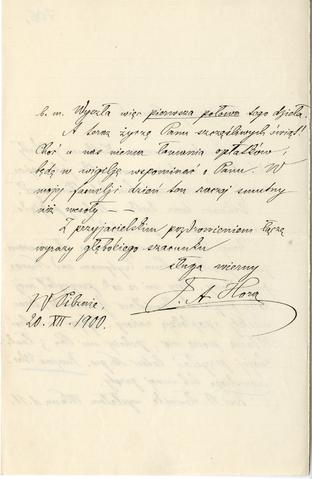 b. m. Wyszła więc pierwsza połowa tego dzieła.
A teraz życzę Panu szczęśliwych świąt!
Choć u nas niema łamania opłatków,
będę w wigilję wspominać o Panu. W
mojej familji dzień ten raczej smutny
niż wesoły — —
Z przyjacielskim pozdrowieniem łączę
wyrazy głębokiego szacunku
sługa wierny
F. A. Hora
W Pilznie,
20. XII. 1900.